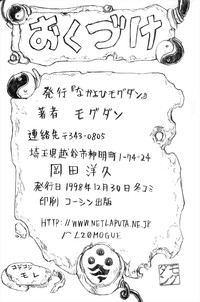 おくづけ
発行『なかよひモグダン』
著者 モグダン
連絡先 〒343-0805
埼玉県越谷市神明町1-74-24
岡田洋久
発行日1998年12月30日冬コミ
印刷 コーシン出版
HTTP://WWW.NETLAPUTA.NE.JP
/~L20MOGUE
モレ